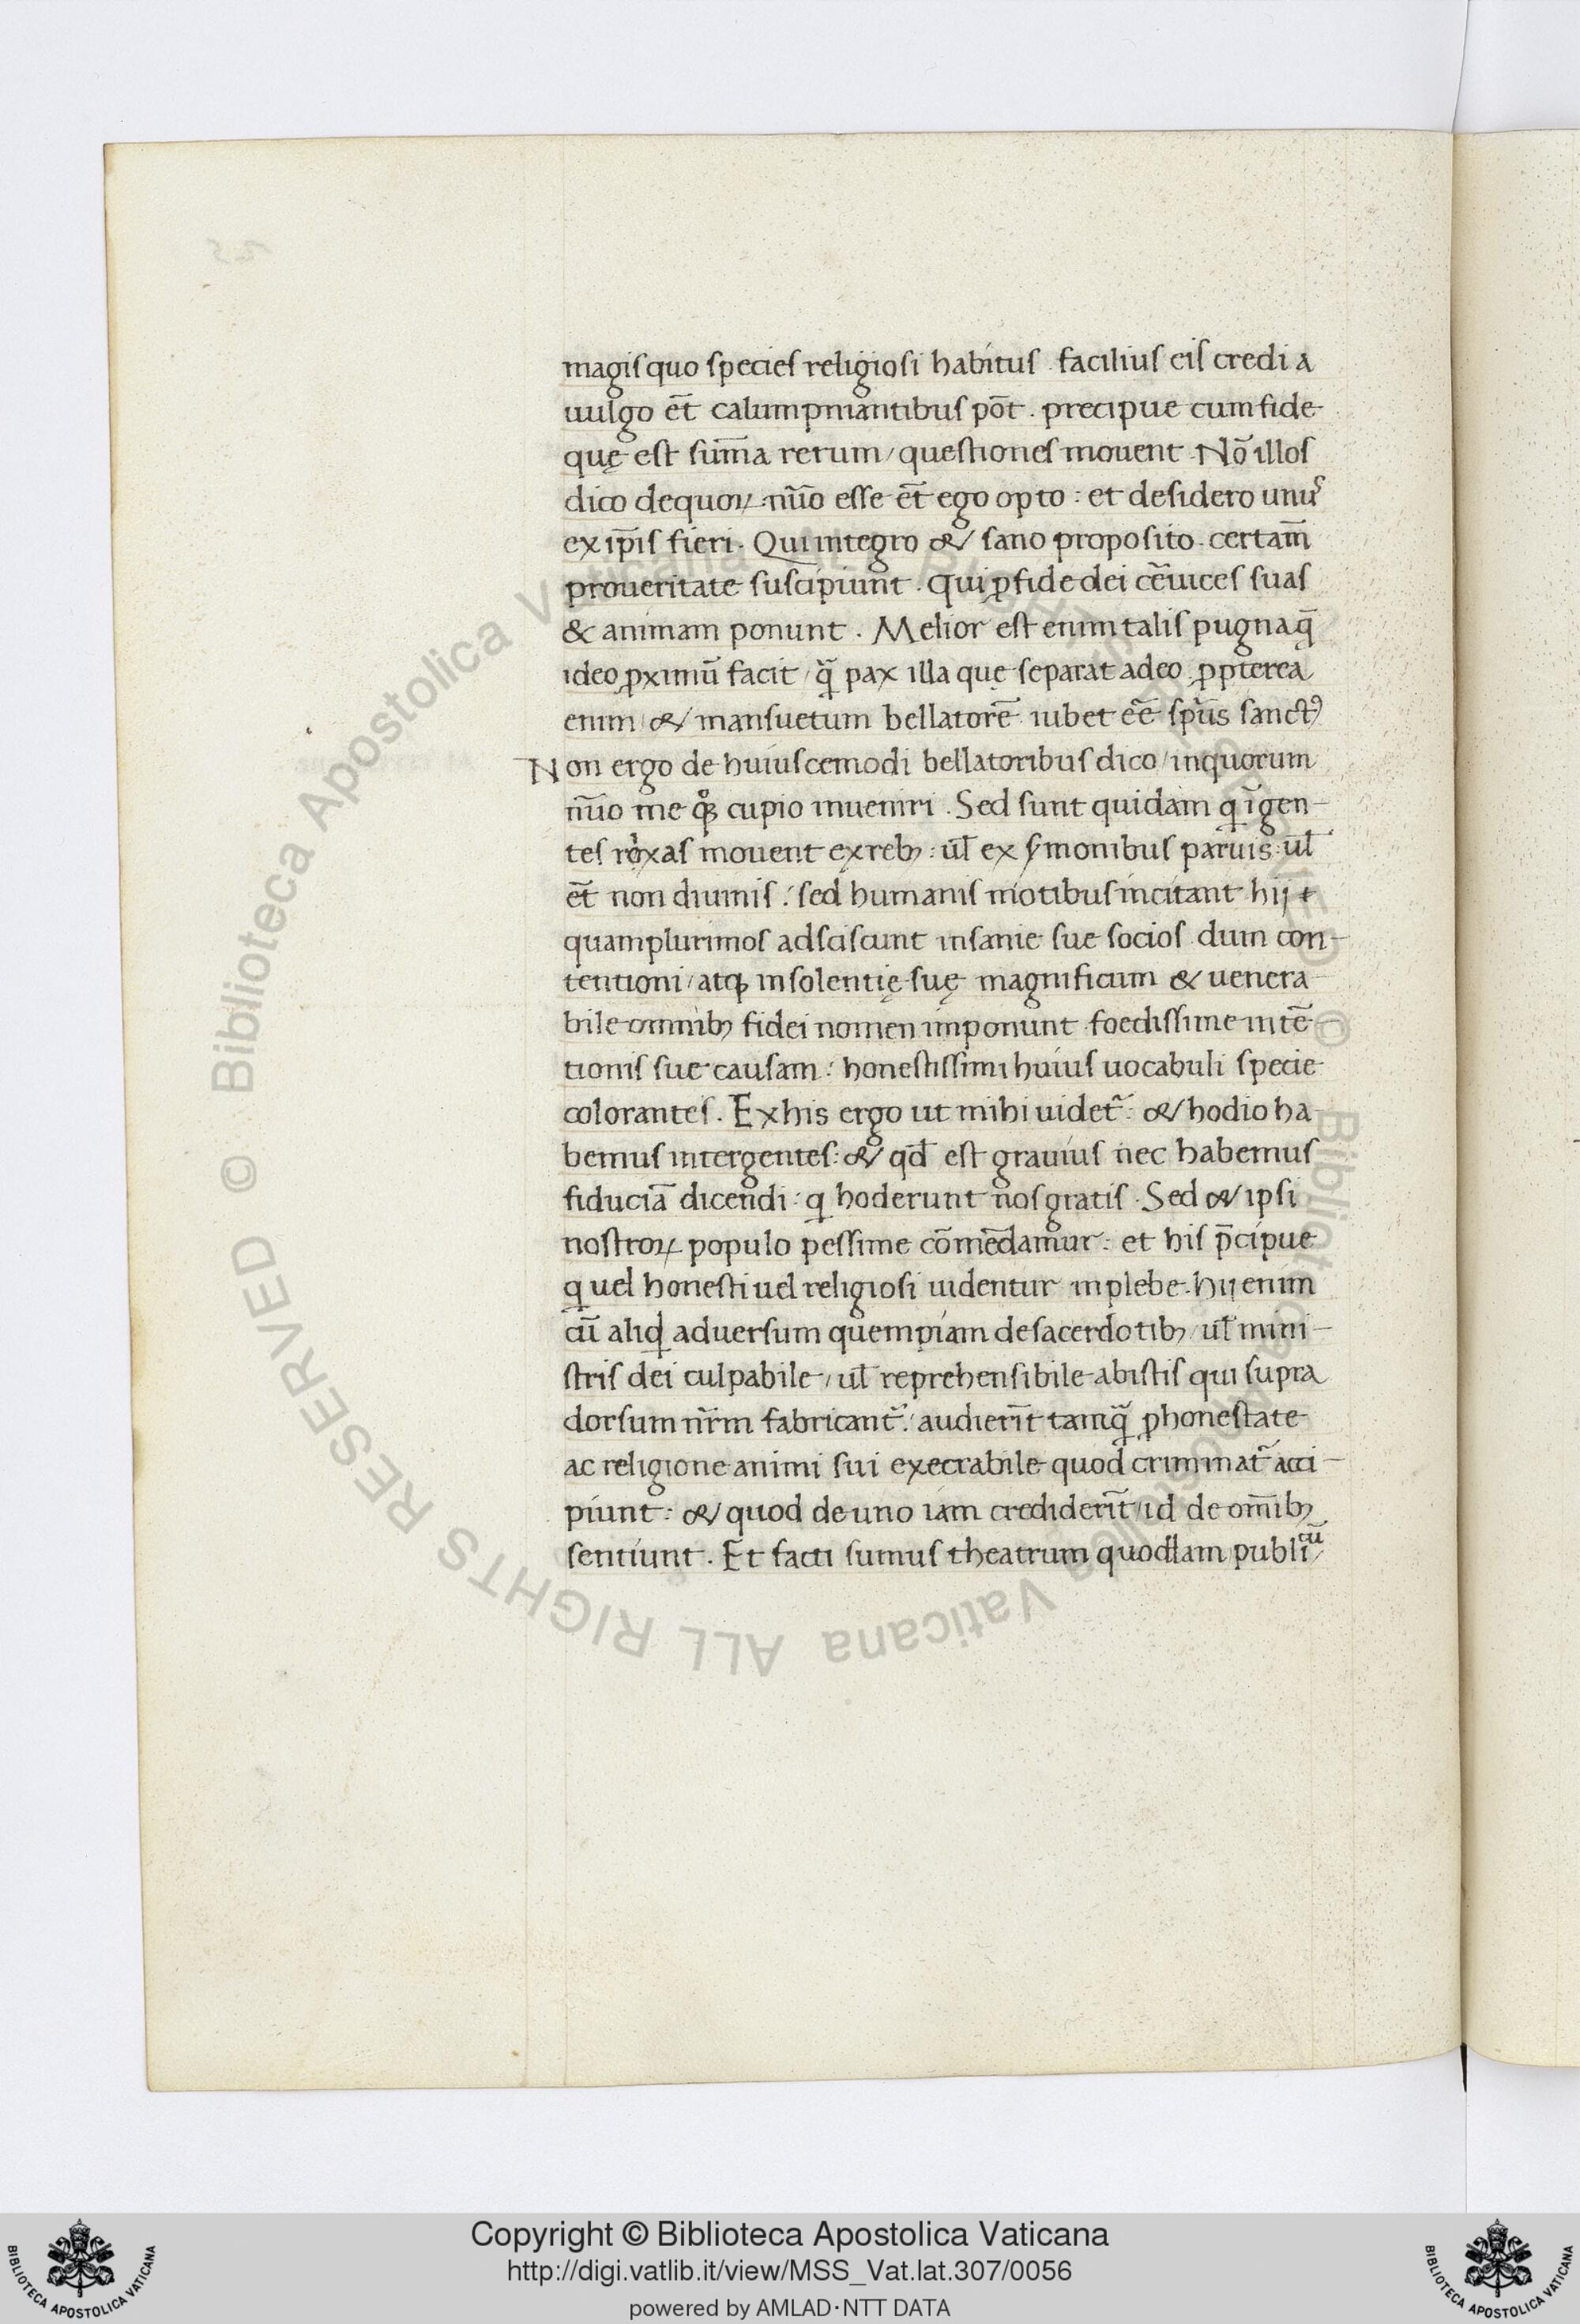 magis quo species religiosi habitus . facilius eis credi a
uulgo et̄ calumpniantibus pōt . precipue cum fide
quę est sum̄a rerum / questiones mouent . Nō illos
dico de quoꝝ nūo esse et̄ ego opto : et desidero unuˢ
ex ip̄is fieri . Qui integro & sano proposito . certam̄
pro ueritate suscipiunt . Qui ꝓ fide dei cēuices suas
& animam ponunt . Melior est enim talis pugna q̄
ideo ꝓximū facit / qᷓ pax illa quę separat a deo ꝓpterea
enim / & mansuetum bellatorē iubet eē̄ sp̄us sanctꝰ
Non ergo de huiuscemodi bellatoribus dico / in quorum
nūo me qͦꝗ cupio inueniri . Sed sunt quidam q īgen-
tes rixas mouent ex rebꝫ : ul̄ ex s̄monibus paruis : ul̄
et̄ non diuinis : sed humanis motibus incitant hij &
quamplurimos adsciscunt insanie sue socios dum con-
tentioni / atqꝫ insolentię suę magnificum & uenera
bile omnibꝫ fidei nomen imponunt foedissime intē-
tionis sue causam : honestissimi huius uocabuli specie
colorantes . Ex his ergo ut mihi uidet᷑ : & hodio ha
bemus inter gentes : & qd̄ est grauius nec habemus
fiduciā dicendi : q hoderunt nos gratis . Sed & ipsi
nostroꝝ populo pessime cōmēdamur : et his p̄cipue
q uel honesti uel religiosi uidentur in plebe . hij enim
cū aliqd aduersum quempiam de sacerdotibꝫ / ul̄ mini-
stris dei culpabile / ul̄ reprehensibile ab istis qui supra
dorsum nr̄m fabricant᷑ : audierīt tamqᷓ ꝓ honestate
ac religione animi sui execrabile quod criminat᷑ acci-
piunt : & quod de uno iam crediderīt / id de om̄ibꝫ
sentiunt . Et facti sumus theatrum quoddam publicū
Copyright © Biblioteca Apostolica Vaticana
http://digi.vatlib.it/view/MSS_Vat.lat.307/0056
powered by AMLAD·NTT DATA
BIBLIOTECA APOSTOLICA VATICANA
BIBLIOTECA APOSTOLICA VATICANA
© Biblioteca Apostolica Vaticana ALL RIGHTS RESERVED © Biblioteca Apostolica Vaticana ALL RIGHTS RESERVED